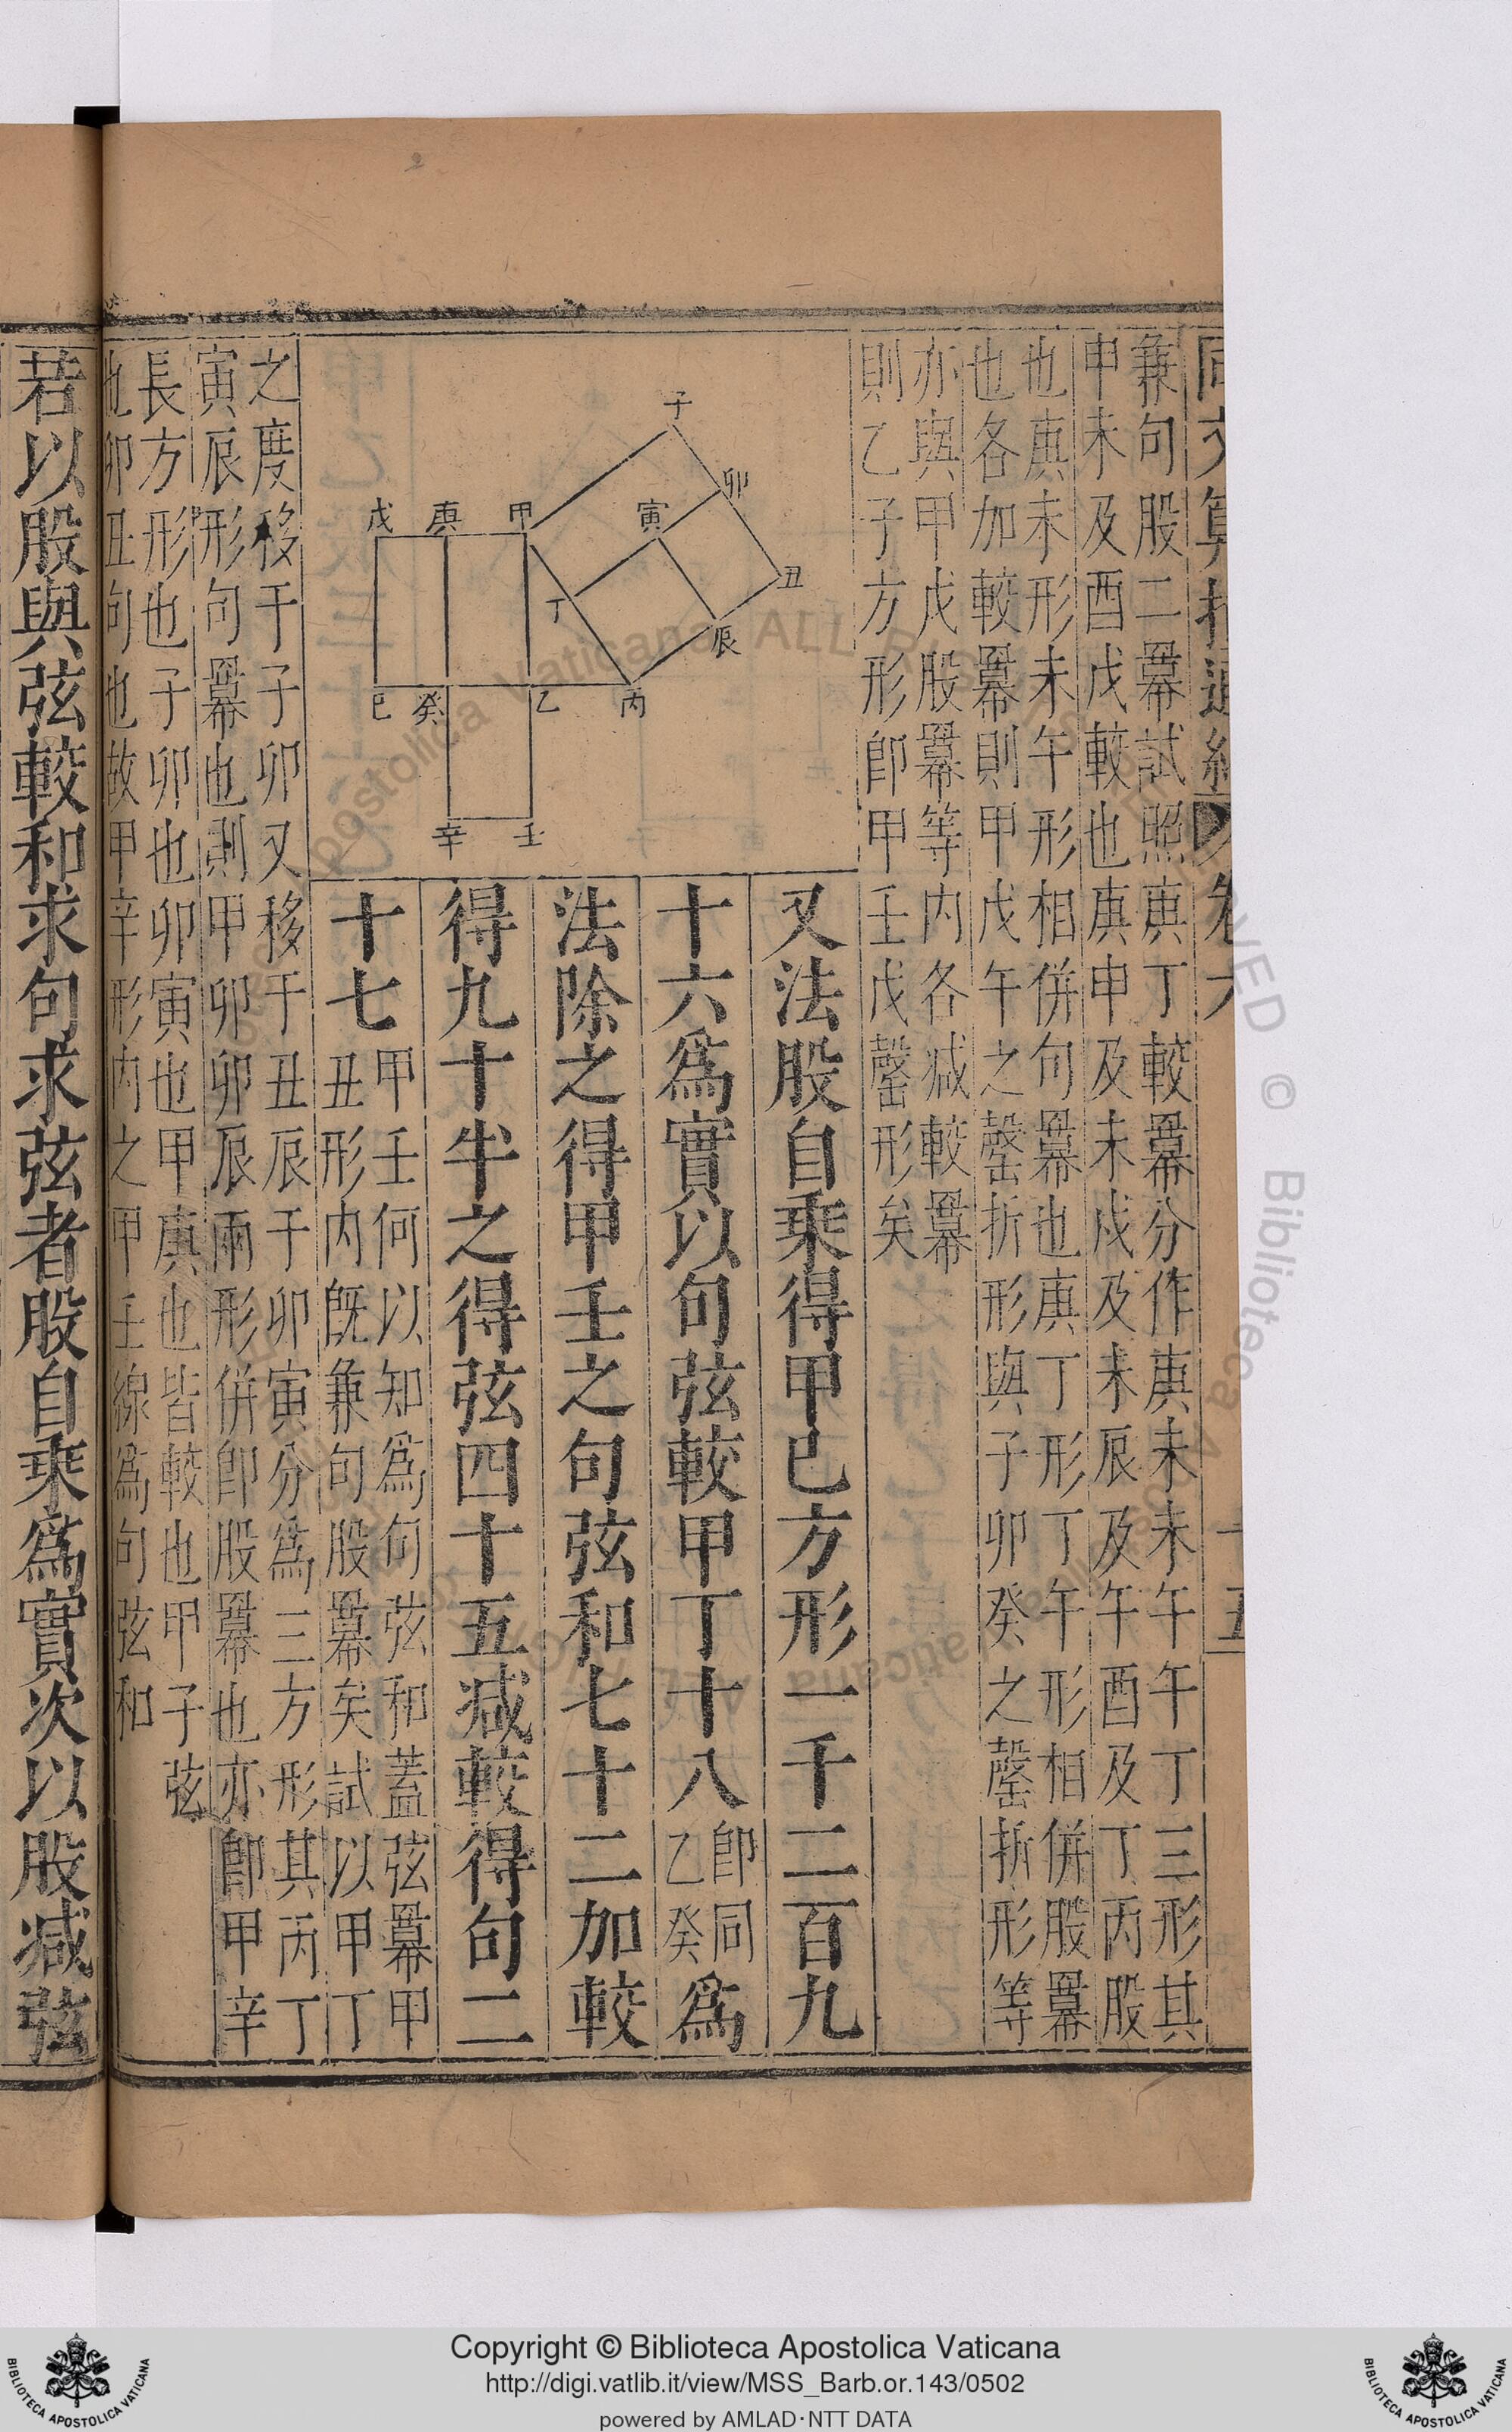 兼句股二羃幕試照庚丁較羃分作庚未未午午丁三形其
申未及酉戊較也庚申及未戍及未辰及午酉及丁丙股
也庚未形未午形相併句羃也庚丁形丁午形相併股羃
也各加較羃則甲戊午之罄折形與子卯癸之罄折形等
亦與甲戊股羃等内各减較羃
則乙子方形卽甲壬戊罄形矣
子
卯
寅
甲
庚
戊
丑
丁
辰
丙
乙
癸
巳
辛
壬
又法股自乘得甲巳方形一千二百九
十六爲實以句弦較甲丁十八卽同乙癸爲
法除之得甲壬之句弦和七十二加較
得九十半之得弦四十五减較得句二
十七甲壬何以知爲句弦和蓋弦羃甲
丑形内旣兼句股羃矣試以甲丁
之度移于子卯又移于丑辰于卯寅分爲三方形其丙丁
寅辰形句羃也則甲卯卯辰兩形併卽股羃也亦卽甲辛
長方形也子卯也卯寅也甲庚也皆較也甲子弦
也卯丑句也故甲辛形内之甲壬線爲句弦和
若以股與弦較和求句求弦者股自乘爲實次以股减弦
Copyright © Biblioteca Apostolica Vaticana
http://digi.vatlib.it/view/MSS_Barb.or.143/0502
powered by AMLAD·NTT DATA
BIBLIOTECA APOSTOLICA VATICANA
BIBLIOTECA APOSTOLICA VATICANA